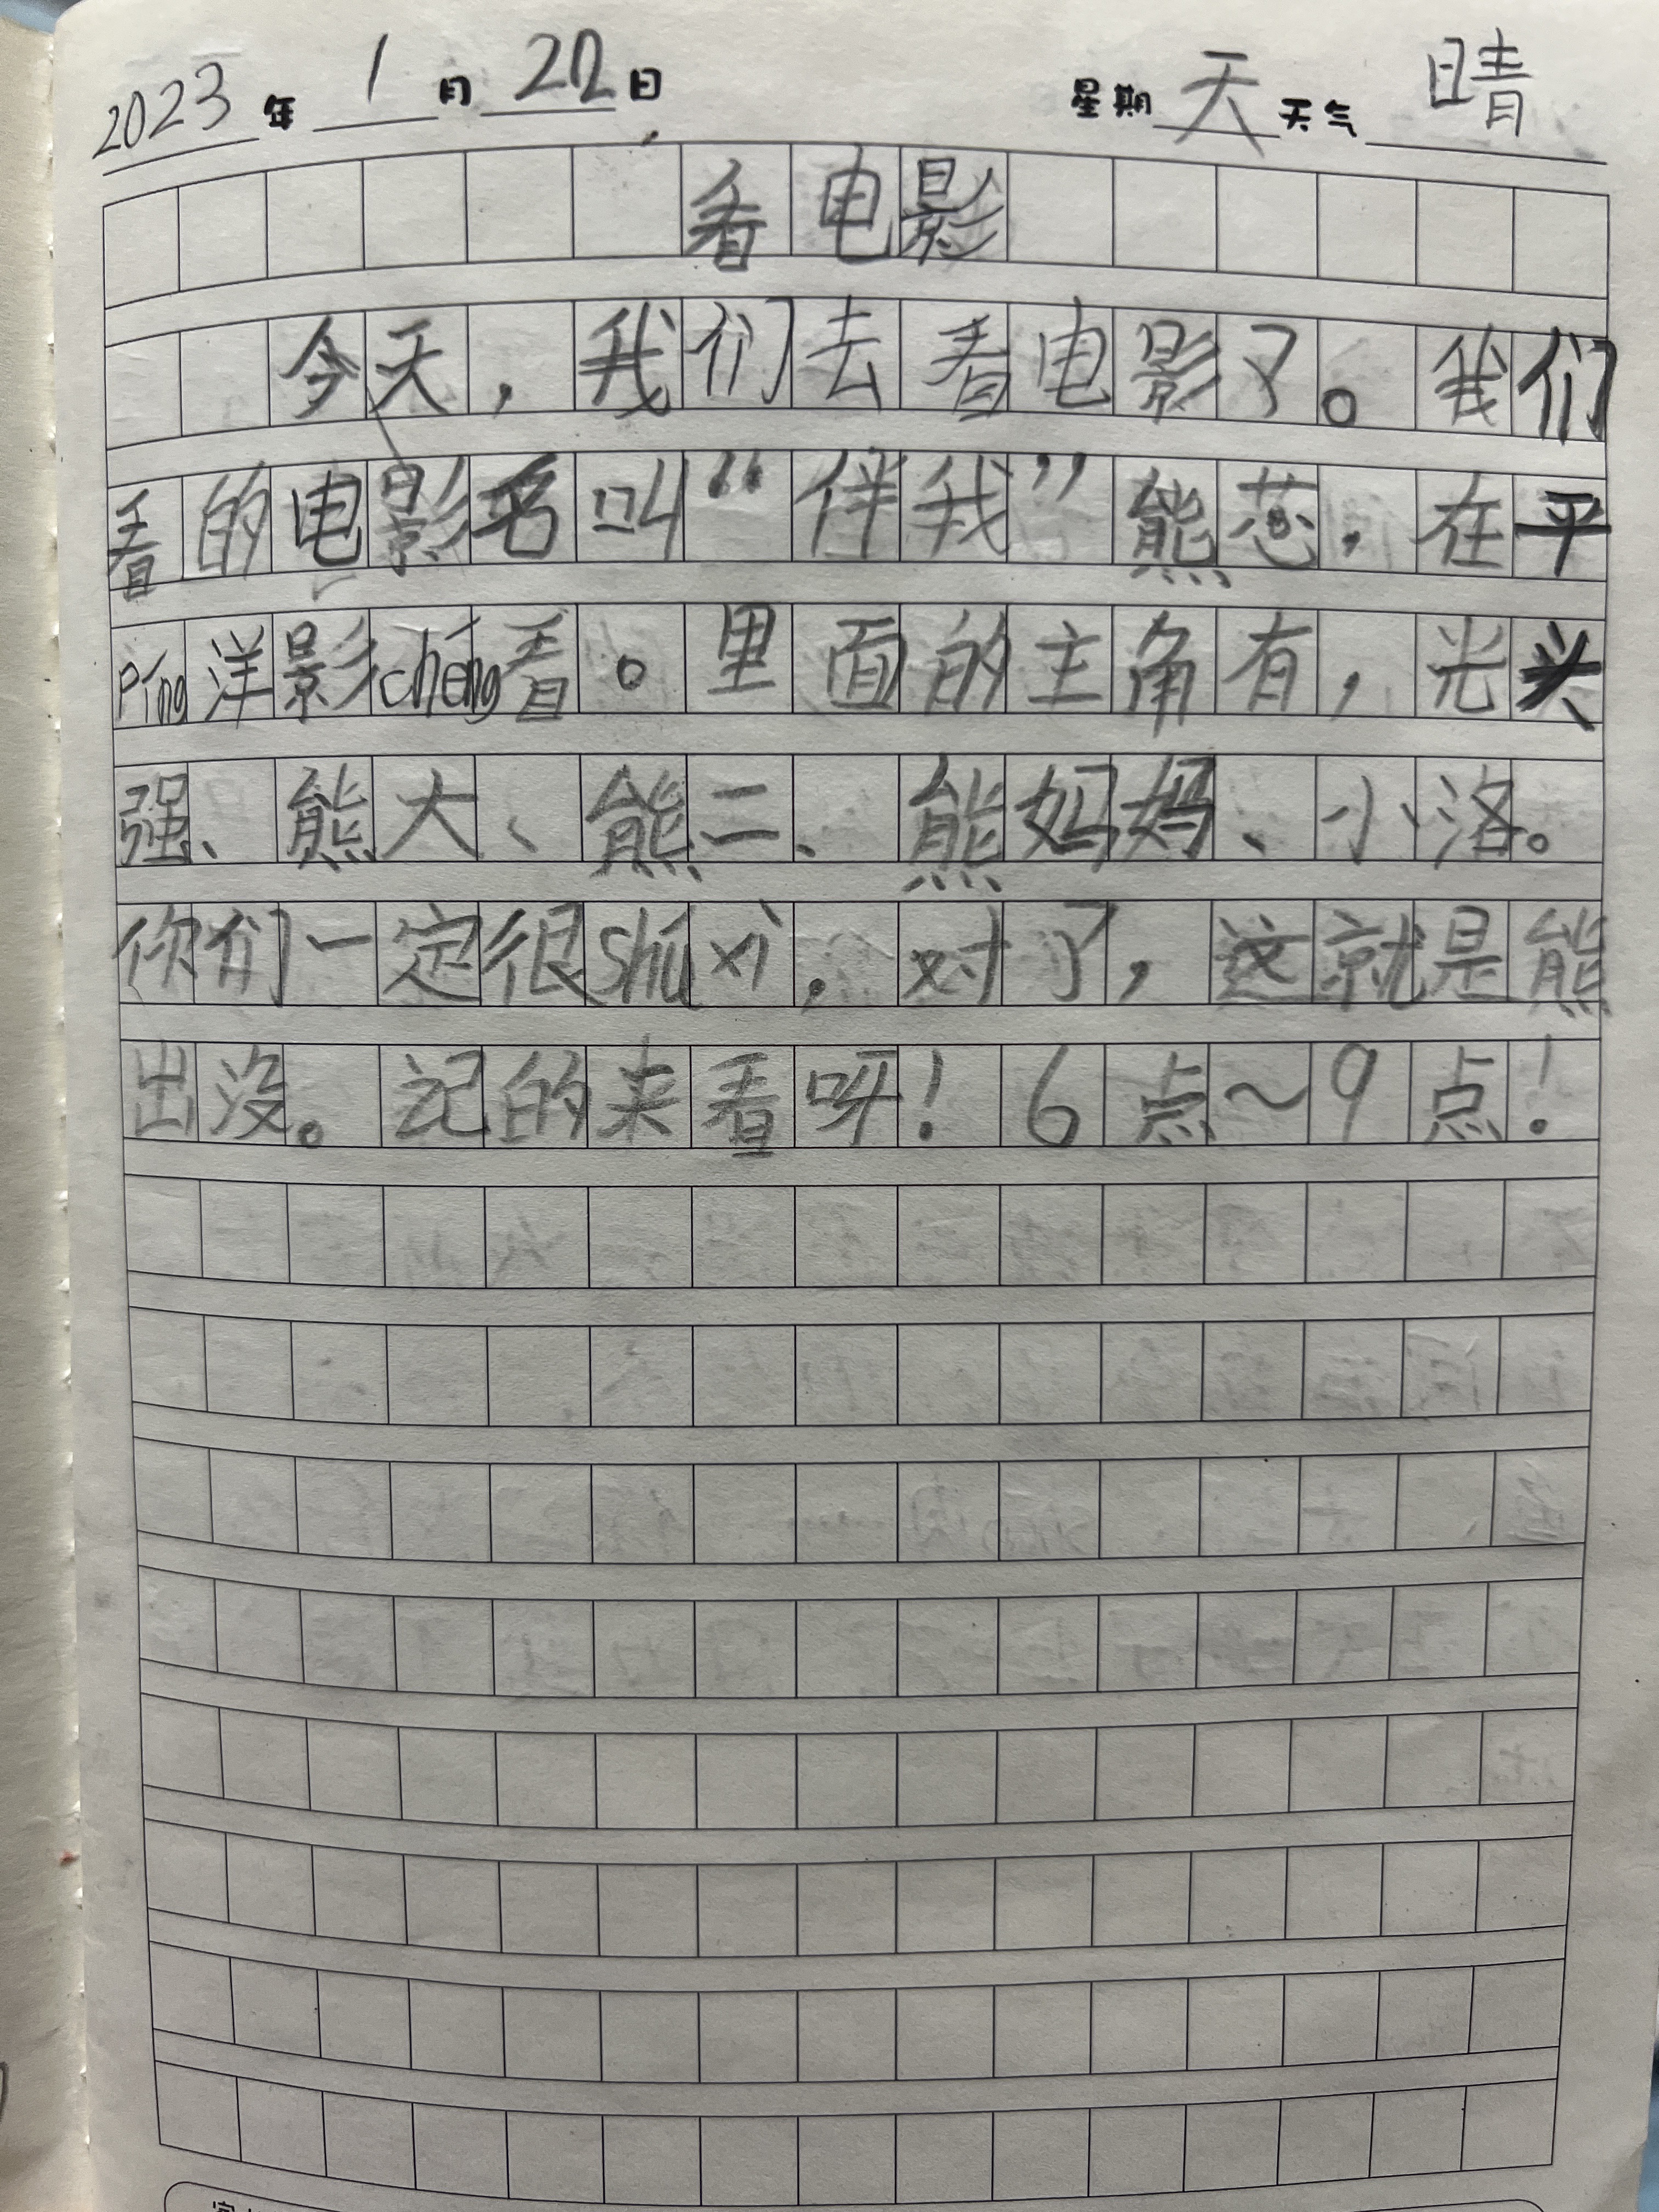 2023年1月22日 星期天天气晴
看电影
今天，我们去看电影了。我们
看的电影名叫“伴我”熊芯，在平
píng洋影chéng看。里面的主角有，光头
强、熊大、熊二、熊妈妈、小洛。
你们一定很shú xi，对了，这就是熊
出没。记的来看呀！6点～9点！